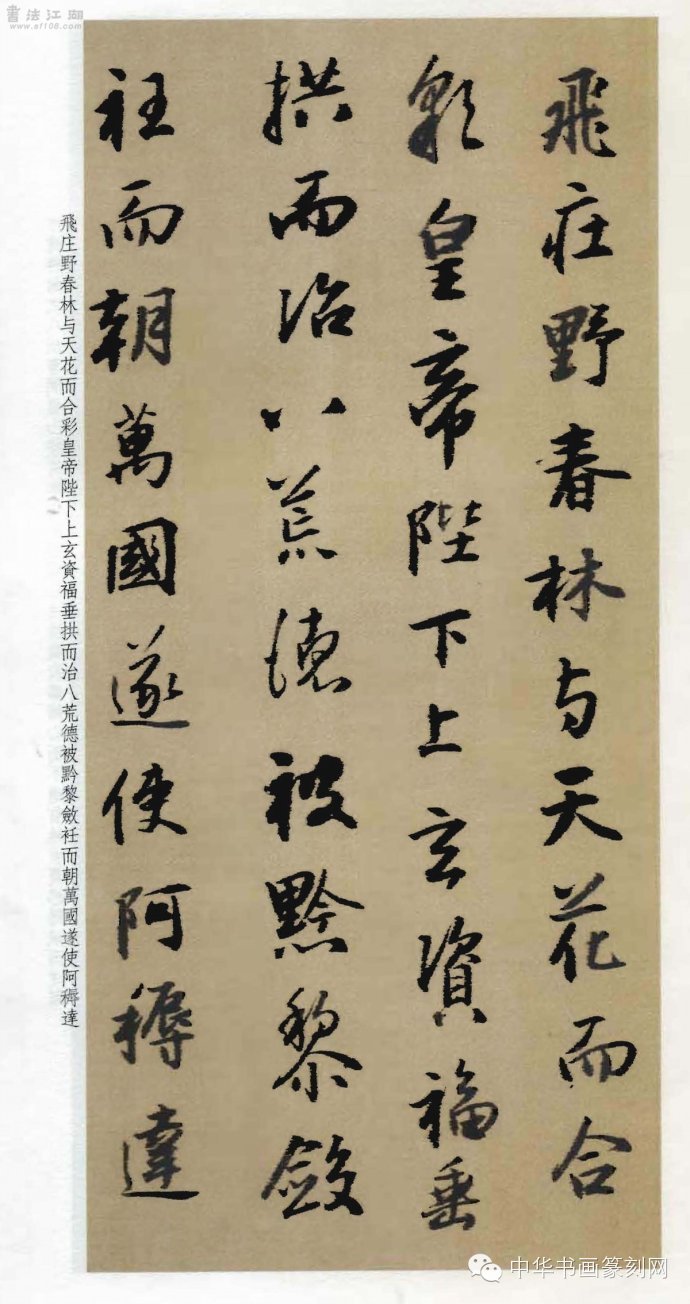 飛庄野春林与天花而合
彩皇帝陛下上玄資福垂
拱而治八荒德被黔黎斂
衽而朝萬國遂使阿耨達
飛庄野春林与天花而合彩皇帝陛下上玄資福垂拱而治八荒德被黔黎斂衽而朝萬國遂使阿耨達
書法江湖
www.sf108.com
中华书画篆刻网